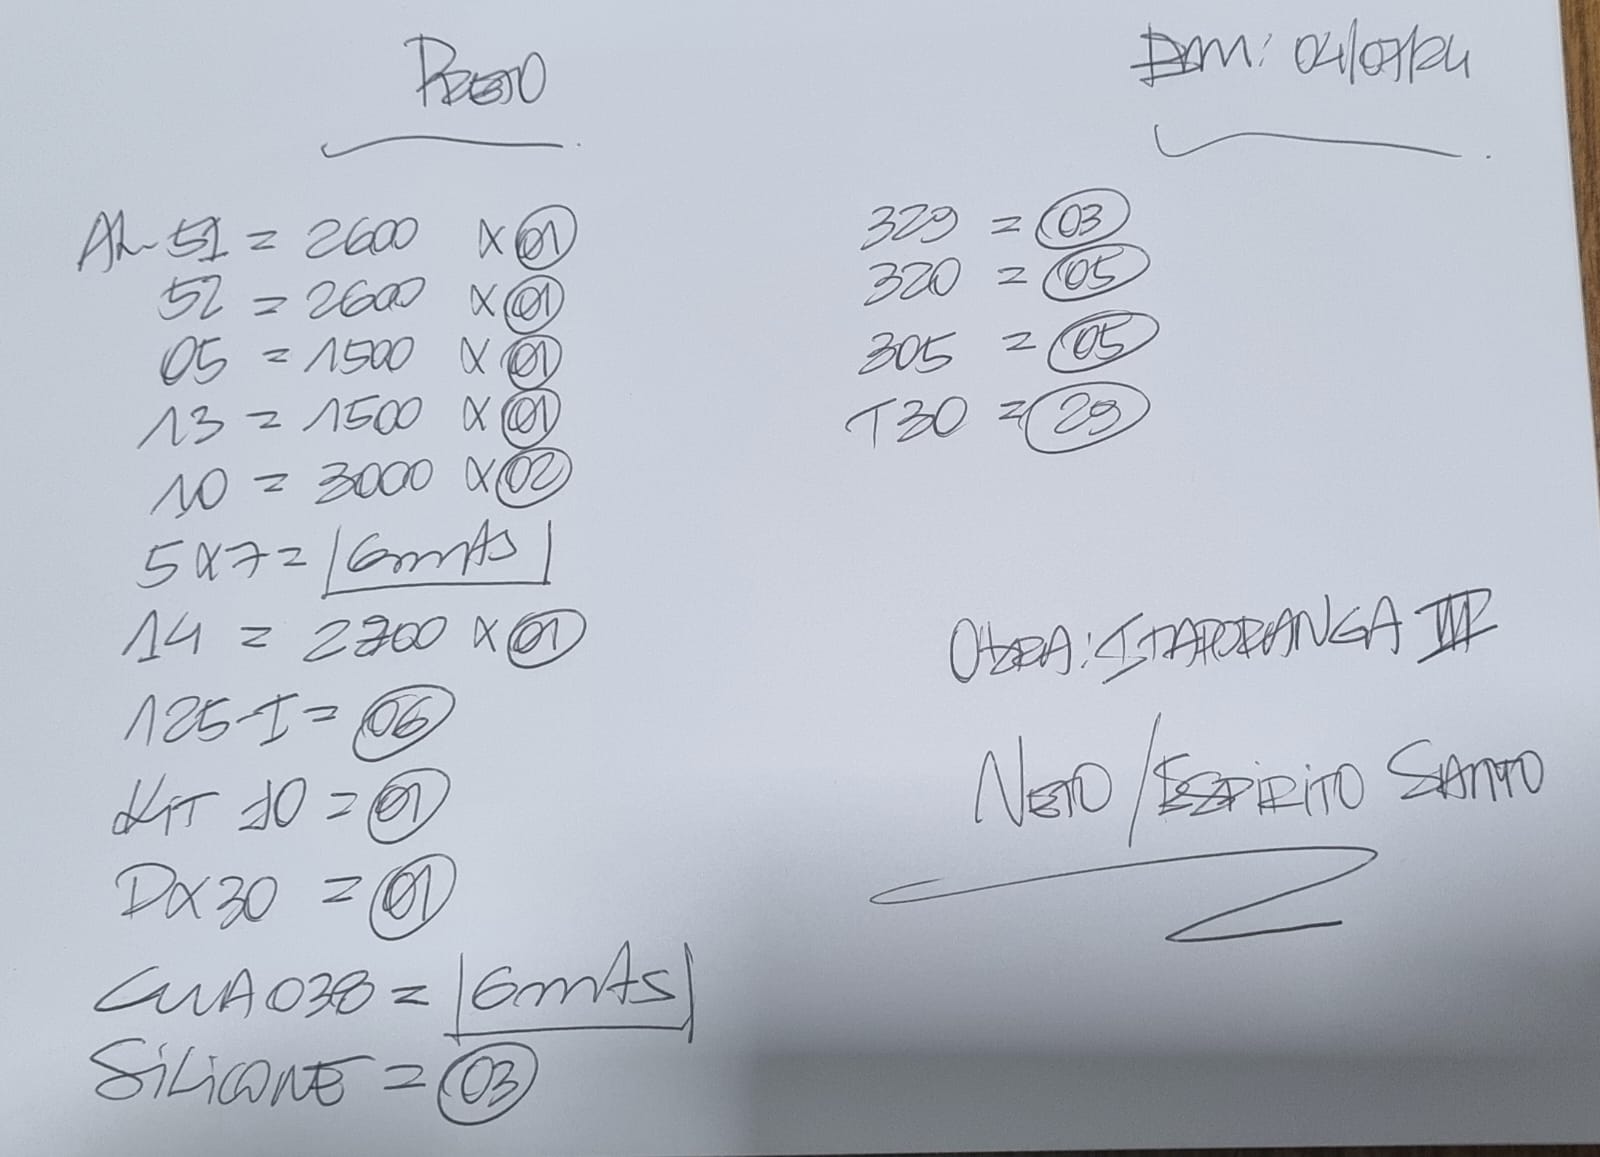 PRETO
BM: 04/07/24
AL-51 = 2600 x 01
52 = 2600 x 01
05 = 1500 x 01
13 = 1500 x 01
10 = 3000 x 02
5x7 = 6mts
14 = 2700 x 01
125-I = 06
KIT 10 = 01
Dx30 = 01
GUA038 = 6mts
SILICONE = 03
329 = 03
320 = 05
305 = 05
T30 = 29
OBRA: ITAPORANGA III
NETO / ESPIRITO SANTO